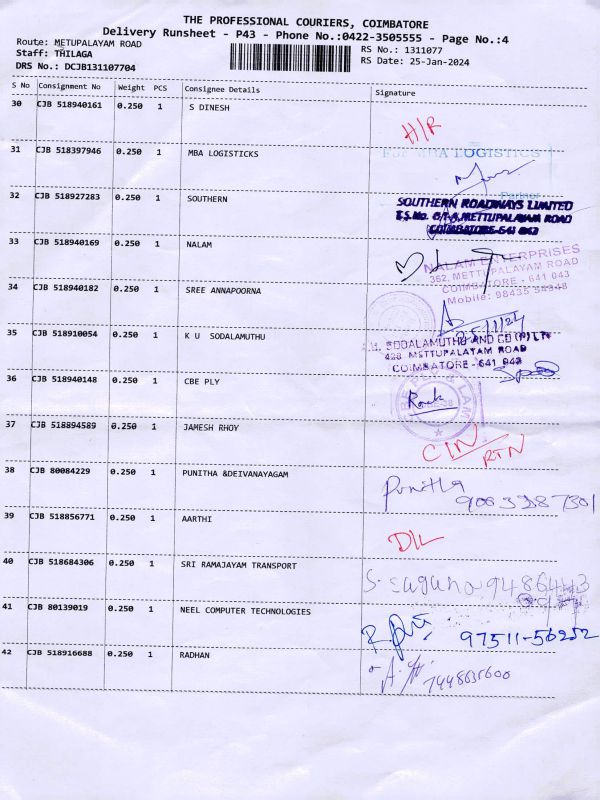 THE PROFESSIONAL COURIERS, COIMBATORE
Delivery Runsheet - P43 - Phone No.:0422-3505555 - Page No.:4
Route: METUPALAYAM ROAD
Staff: THILAGA
DRS No.: DCJB131107704
RS No.: 1311077
RS Date: 25-Jan-2024
S No Consignment No Weight PCS Consignee Details Signature
30 CJB 518940161 0.250 1 S DINESH
H/R
31 CJB 518397946 0.250 1 MBA LOGISTICKS
For MBA LOGISTICS
Partner
32 CJB 518927283 0.250 1 SOUTHERN
SOUTHERN ROADWAYS LIMITED
METTUPALAYAM ROAD
COIMBATORE-641 043
33 CJB 518940169 0.250 1 NALAM
NALAM ENTERPRISES
352, METTUPALAYAM ROAD
COIMBATORE - 641 043
Mobile: 98435 54348
34 CJB 518940182 0.250 1 SREE ANNAPOORNA
25/1/24
35 CJB 518910054 0.250 1 K U SODALAMUTHU
SODALAMUTHU AND CO (P) LTD
428 METTUPALAYAM ROAD
COIMBATORE - 641 043
36 CJB 518940148 0.250 1 CBE PLY
37 CJB 518894589 0.250 1 JAMESH RHOY
C/N
RTN
38 CJB 80084229 0.250 1 PUNITHA &DEIVANAYAGAM
Punitha
9003287301
39 CJB 518856771 0.250 1 AARTHI
D/L
40 CJB 518684306 0.250 1 SRI RAMAJAYAM TRANSPORT
S. Saguna
41 CJB 80139019 0.250 1 NEEL COMPUTER TECHNOLOGIES
97511-56252
42 CJB 518916688 0.250 1 RADHAN
7448635600